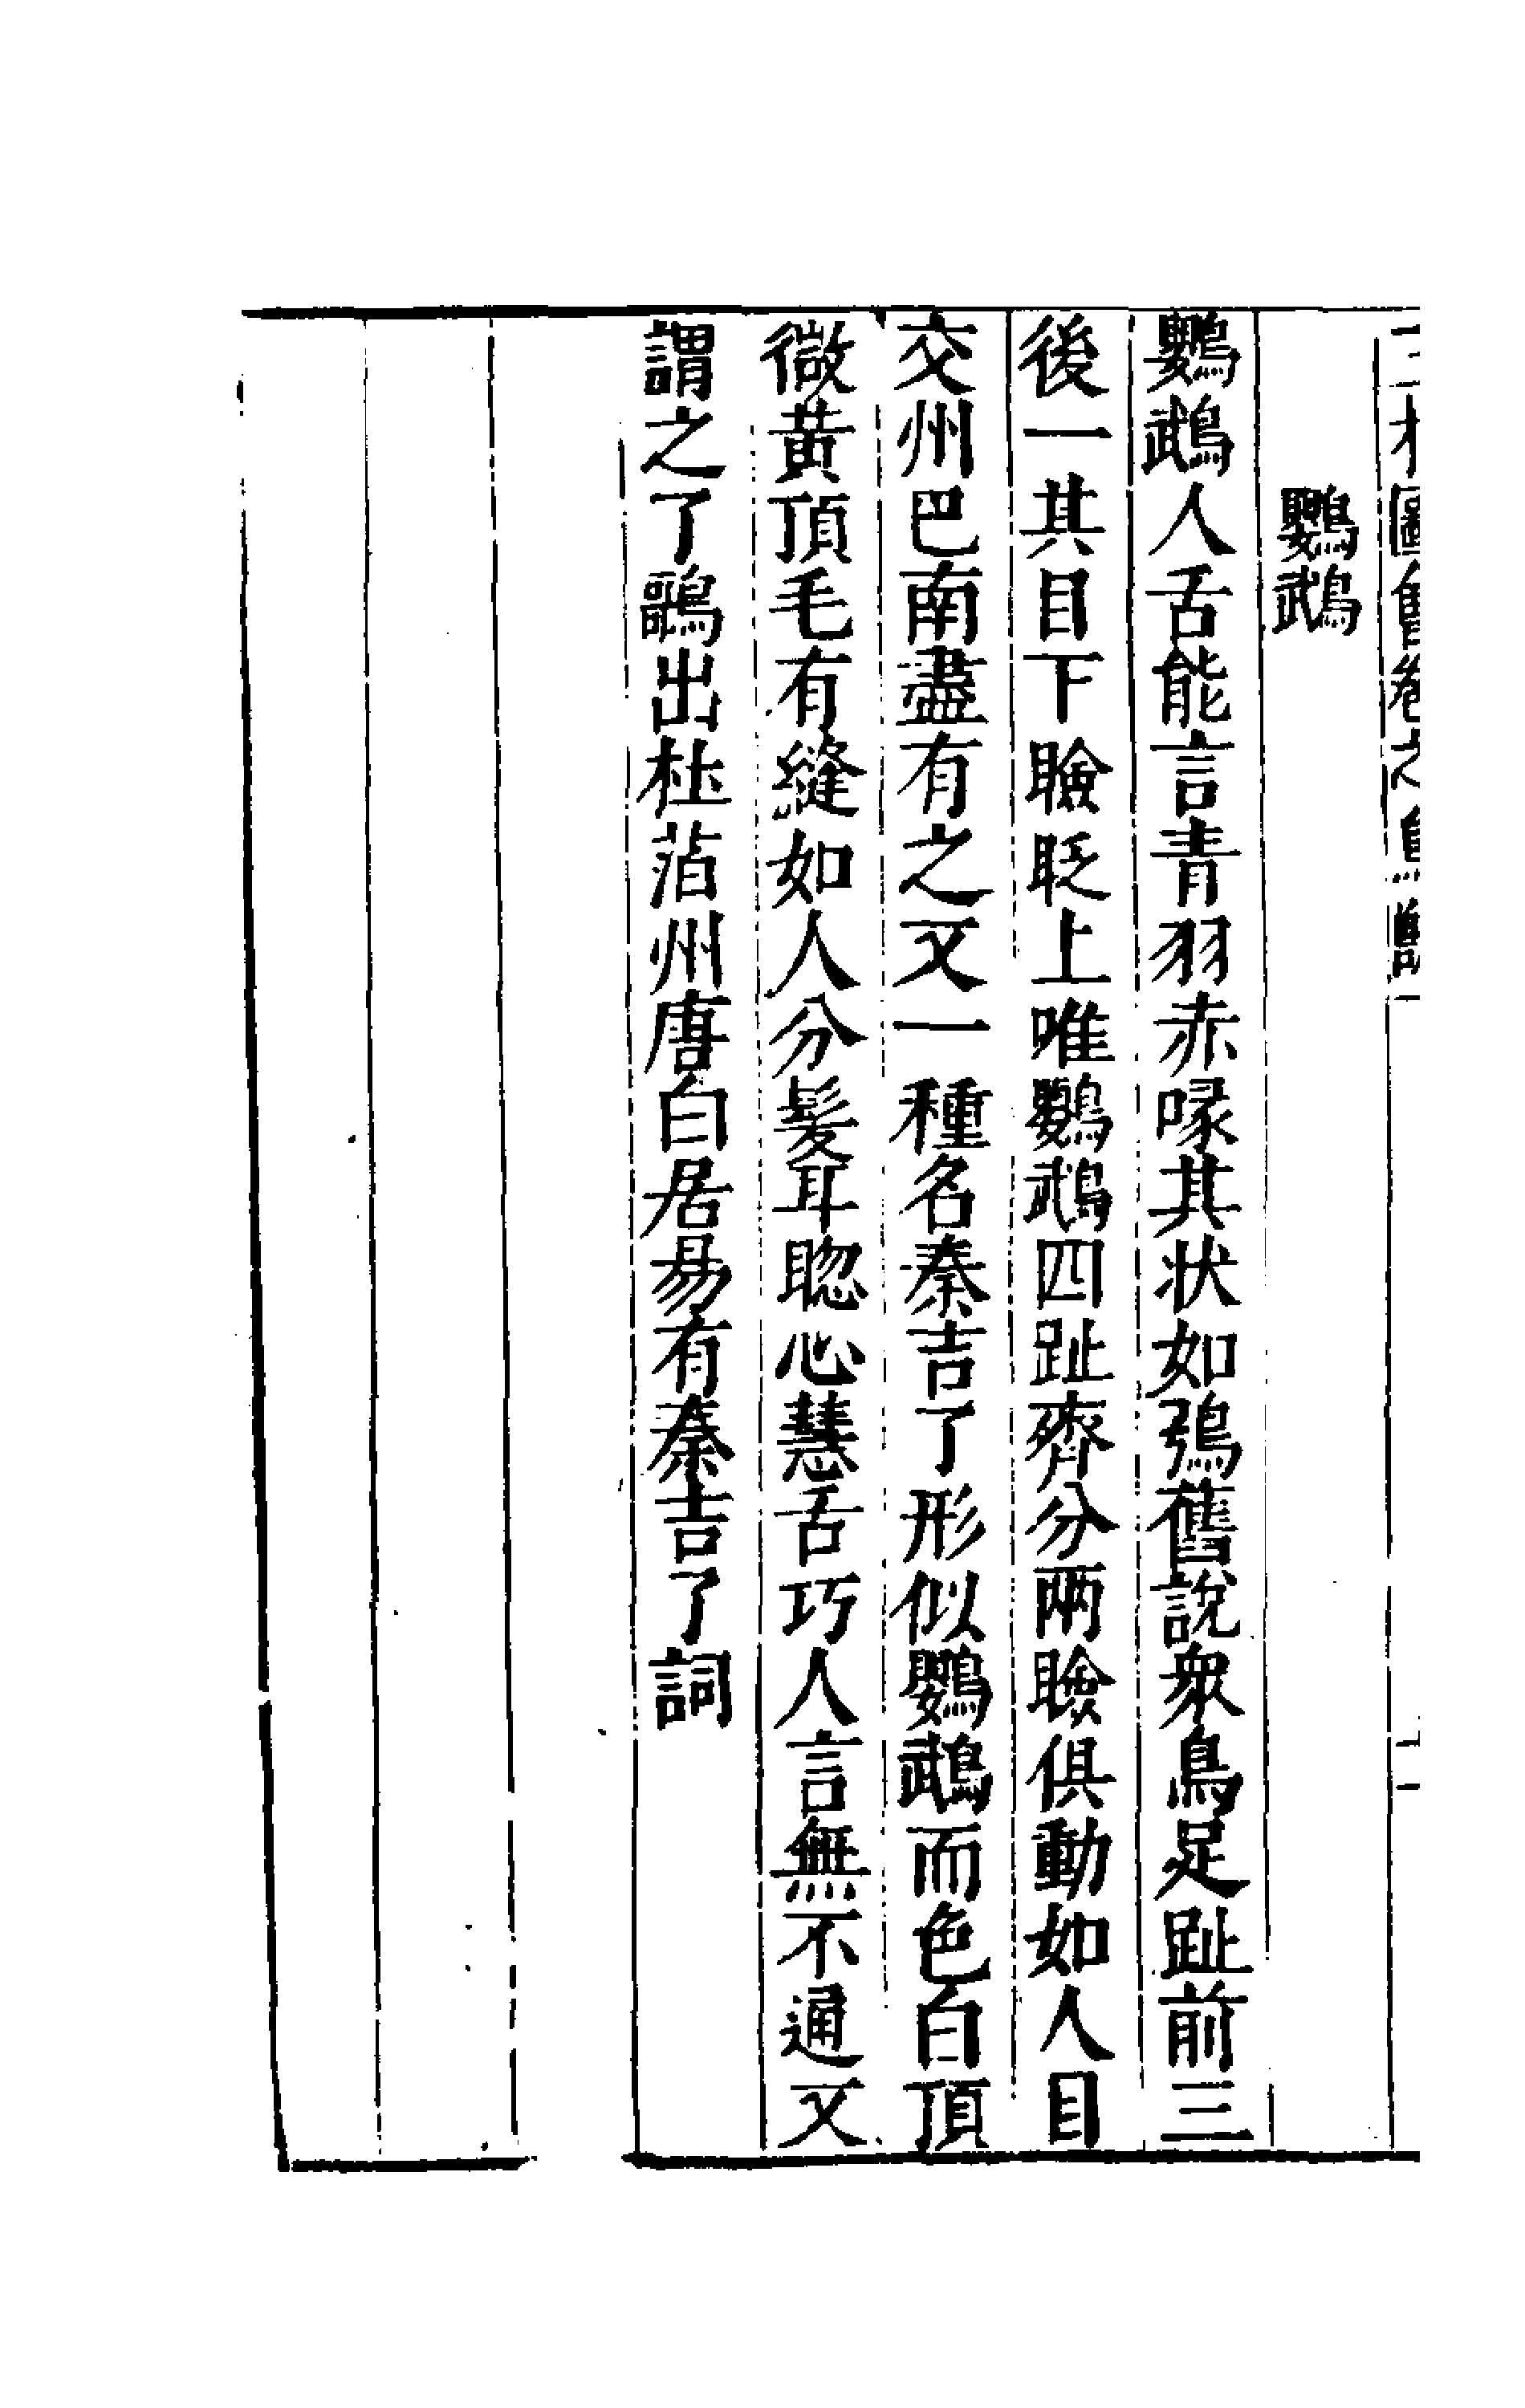 鸚鵡
鸚鵡人舌能言青羽赤喙其状如鴞舊說衆鳥足趾前三
後一其目下瞼眨上唯鸚鵡四趾齊分兩瞼俱動如人目
交州巴南盡有之又一種名秦吉了形似鸚鵡而色白頂
微黃頂毛有縫如人分髮耳聰心慧舌巧人言無不通又
謂之了鴞出杜萡州唐白居易有秦吉了詞